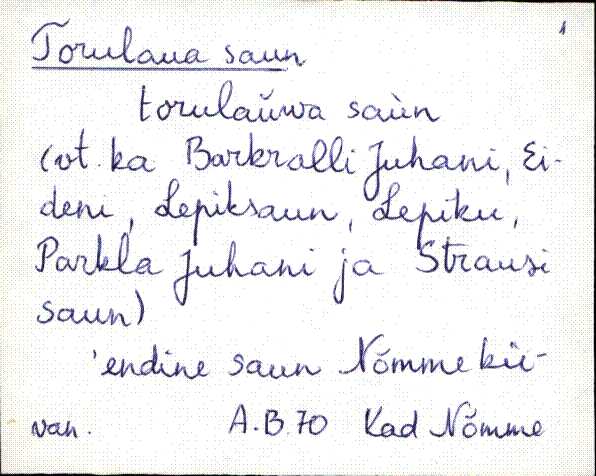 1
Torulaua saun
torulaŭwa saùn
(vt. ka Barkralli Juhani, Ei-
deni, Lepiksaun, Lepiku,
Parkla Juhani ja Strausi
saun)
'endine saun Nõmme kü-
van. A.B. 70 Kad Nõmme